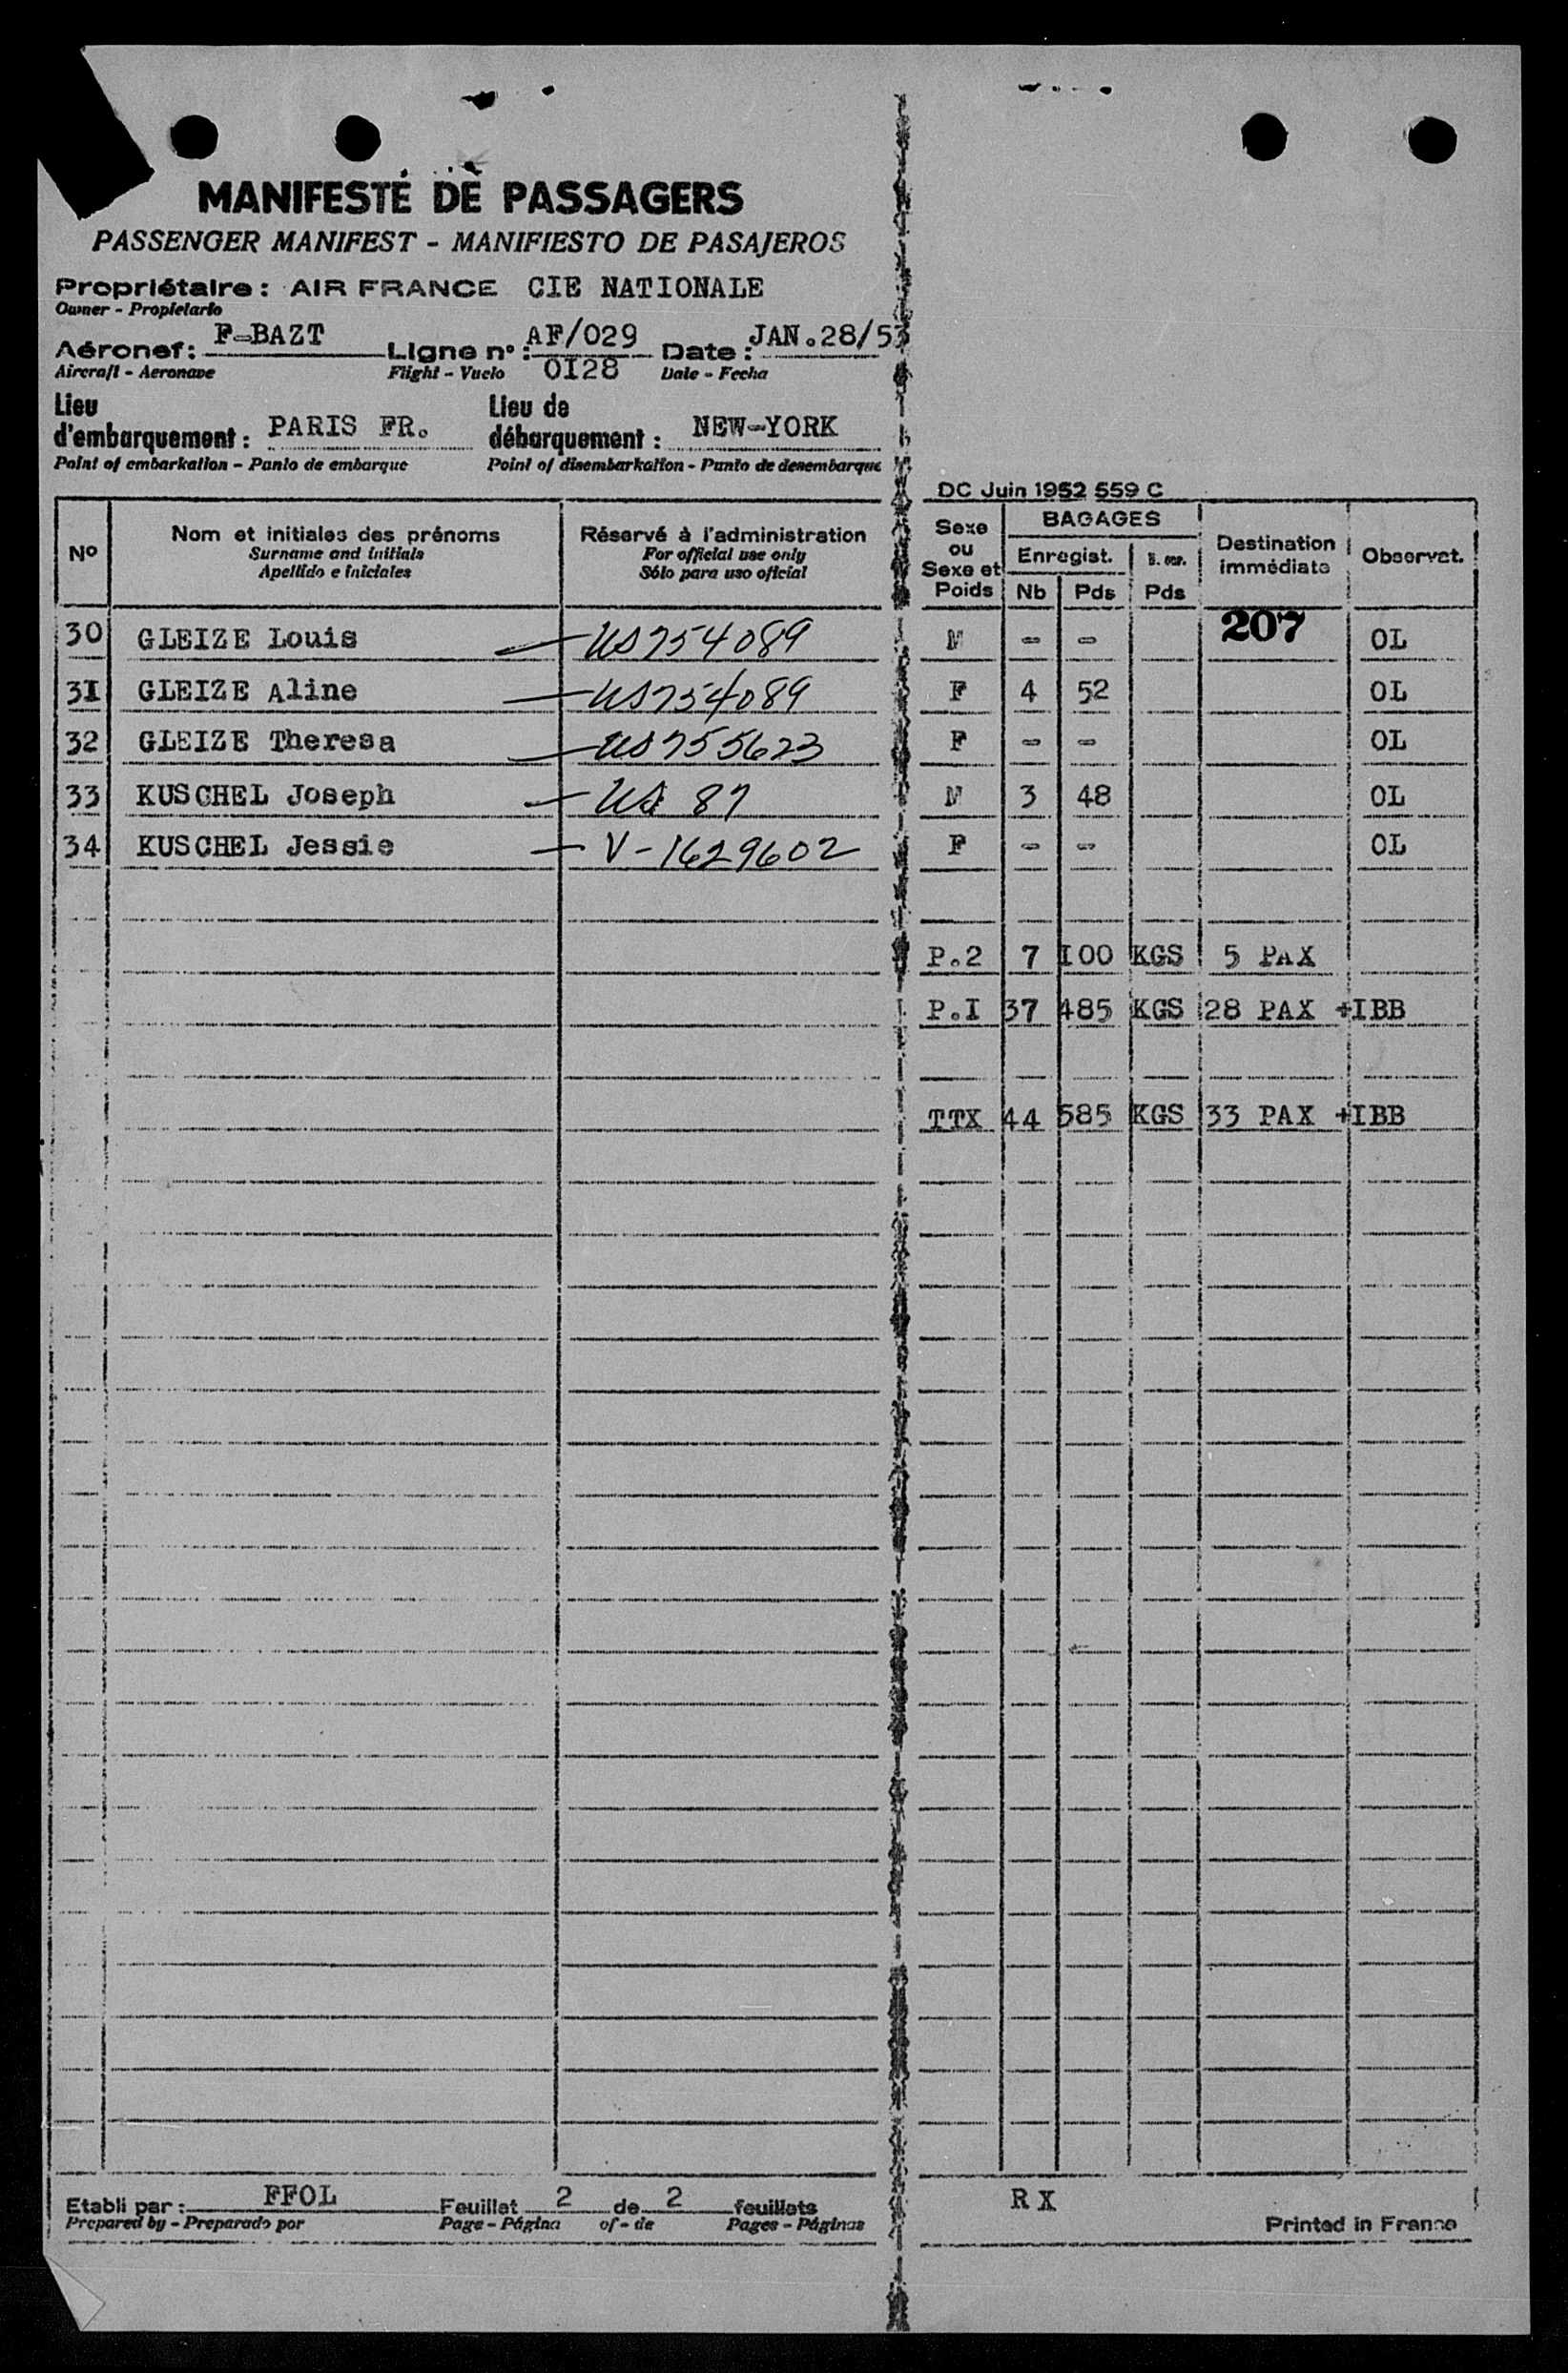 MANIFESTE DE PASSAGERS
PASSENGER MANIFEST - MANIFIESTO DE PASAJEROS
Propriétaire : AIR FRANCE CIE NATIONALE
Owner - Propietario
Aéronef : F-BAZT Ligne n° : AF/029 Date : JAN.28/53
Aircraft - Aeronave Flight - Vuelo 0I28 Date - Fecha
Lieu d'embarquement : PARIS FR. Lieu de débarquement : NEW-YORK
Point of embarkation - Punto de embarque Point of disembarkation - Punto de desembarque
DC Juin 1952 559 C
No Nom et initiales des prénoms Réservé à l'administration Sexe ou Sexe et Poids BAGAGES Destination immédiate Observat.
Surname and initials For official use only Enregist.
Apellido e iniciales Sólo para uso oficial Nb Pds Pds
207
30 GLEIZE Louis — US754089 M - - OL
3I GLEIZE Aline — US754089 F 4 52 OL
32 GLEIZE Theresa — US755623 F - - OL
33 KUSCHEL Joseph — US 87 M 3 48 OL
34 KUSCHEL Jessie — V-1629602 F - - OL
P.2 7 I00 KGS 5 PAX
P.I 37 485 KGS 28 PAX +IBB
TTX 44 585 KGS 33 PAX +IBB
Etabli par : FFOL Feuillet 2 de 2 feuillets RX
Prepared by - Preparado por Page - Página of - de Pages - Páginas Printed in France